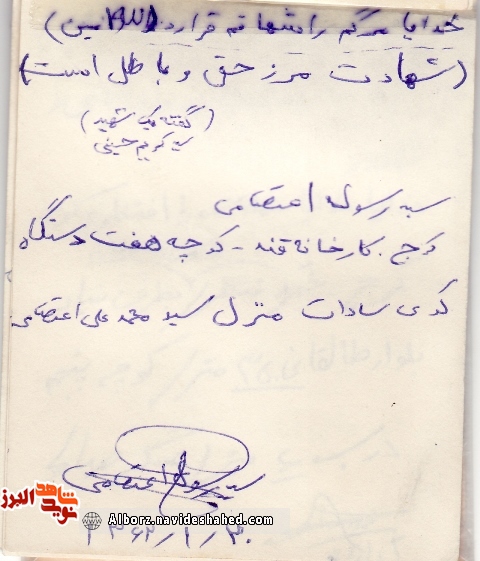 خدایا مرگم را شهادت قرار ده (آمین)
(شهادت مرز حق و باطل است)
(گفته یک شهید)
سید کریم حسینی
سید رسول اعتصامی
کرج. کارخانه قند - کوچه هفت دستگاه
کوی سادات منزل سید محمد علی اعتصامی
سید رسول اعتصامی
۱۳۶۲/۱/۳۰
شاهد
نوید
البرز
Alborz.navideshahed.com